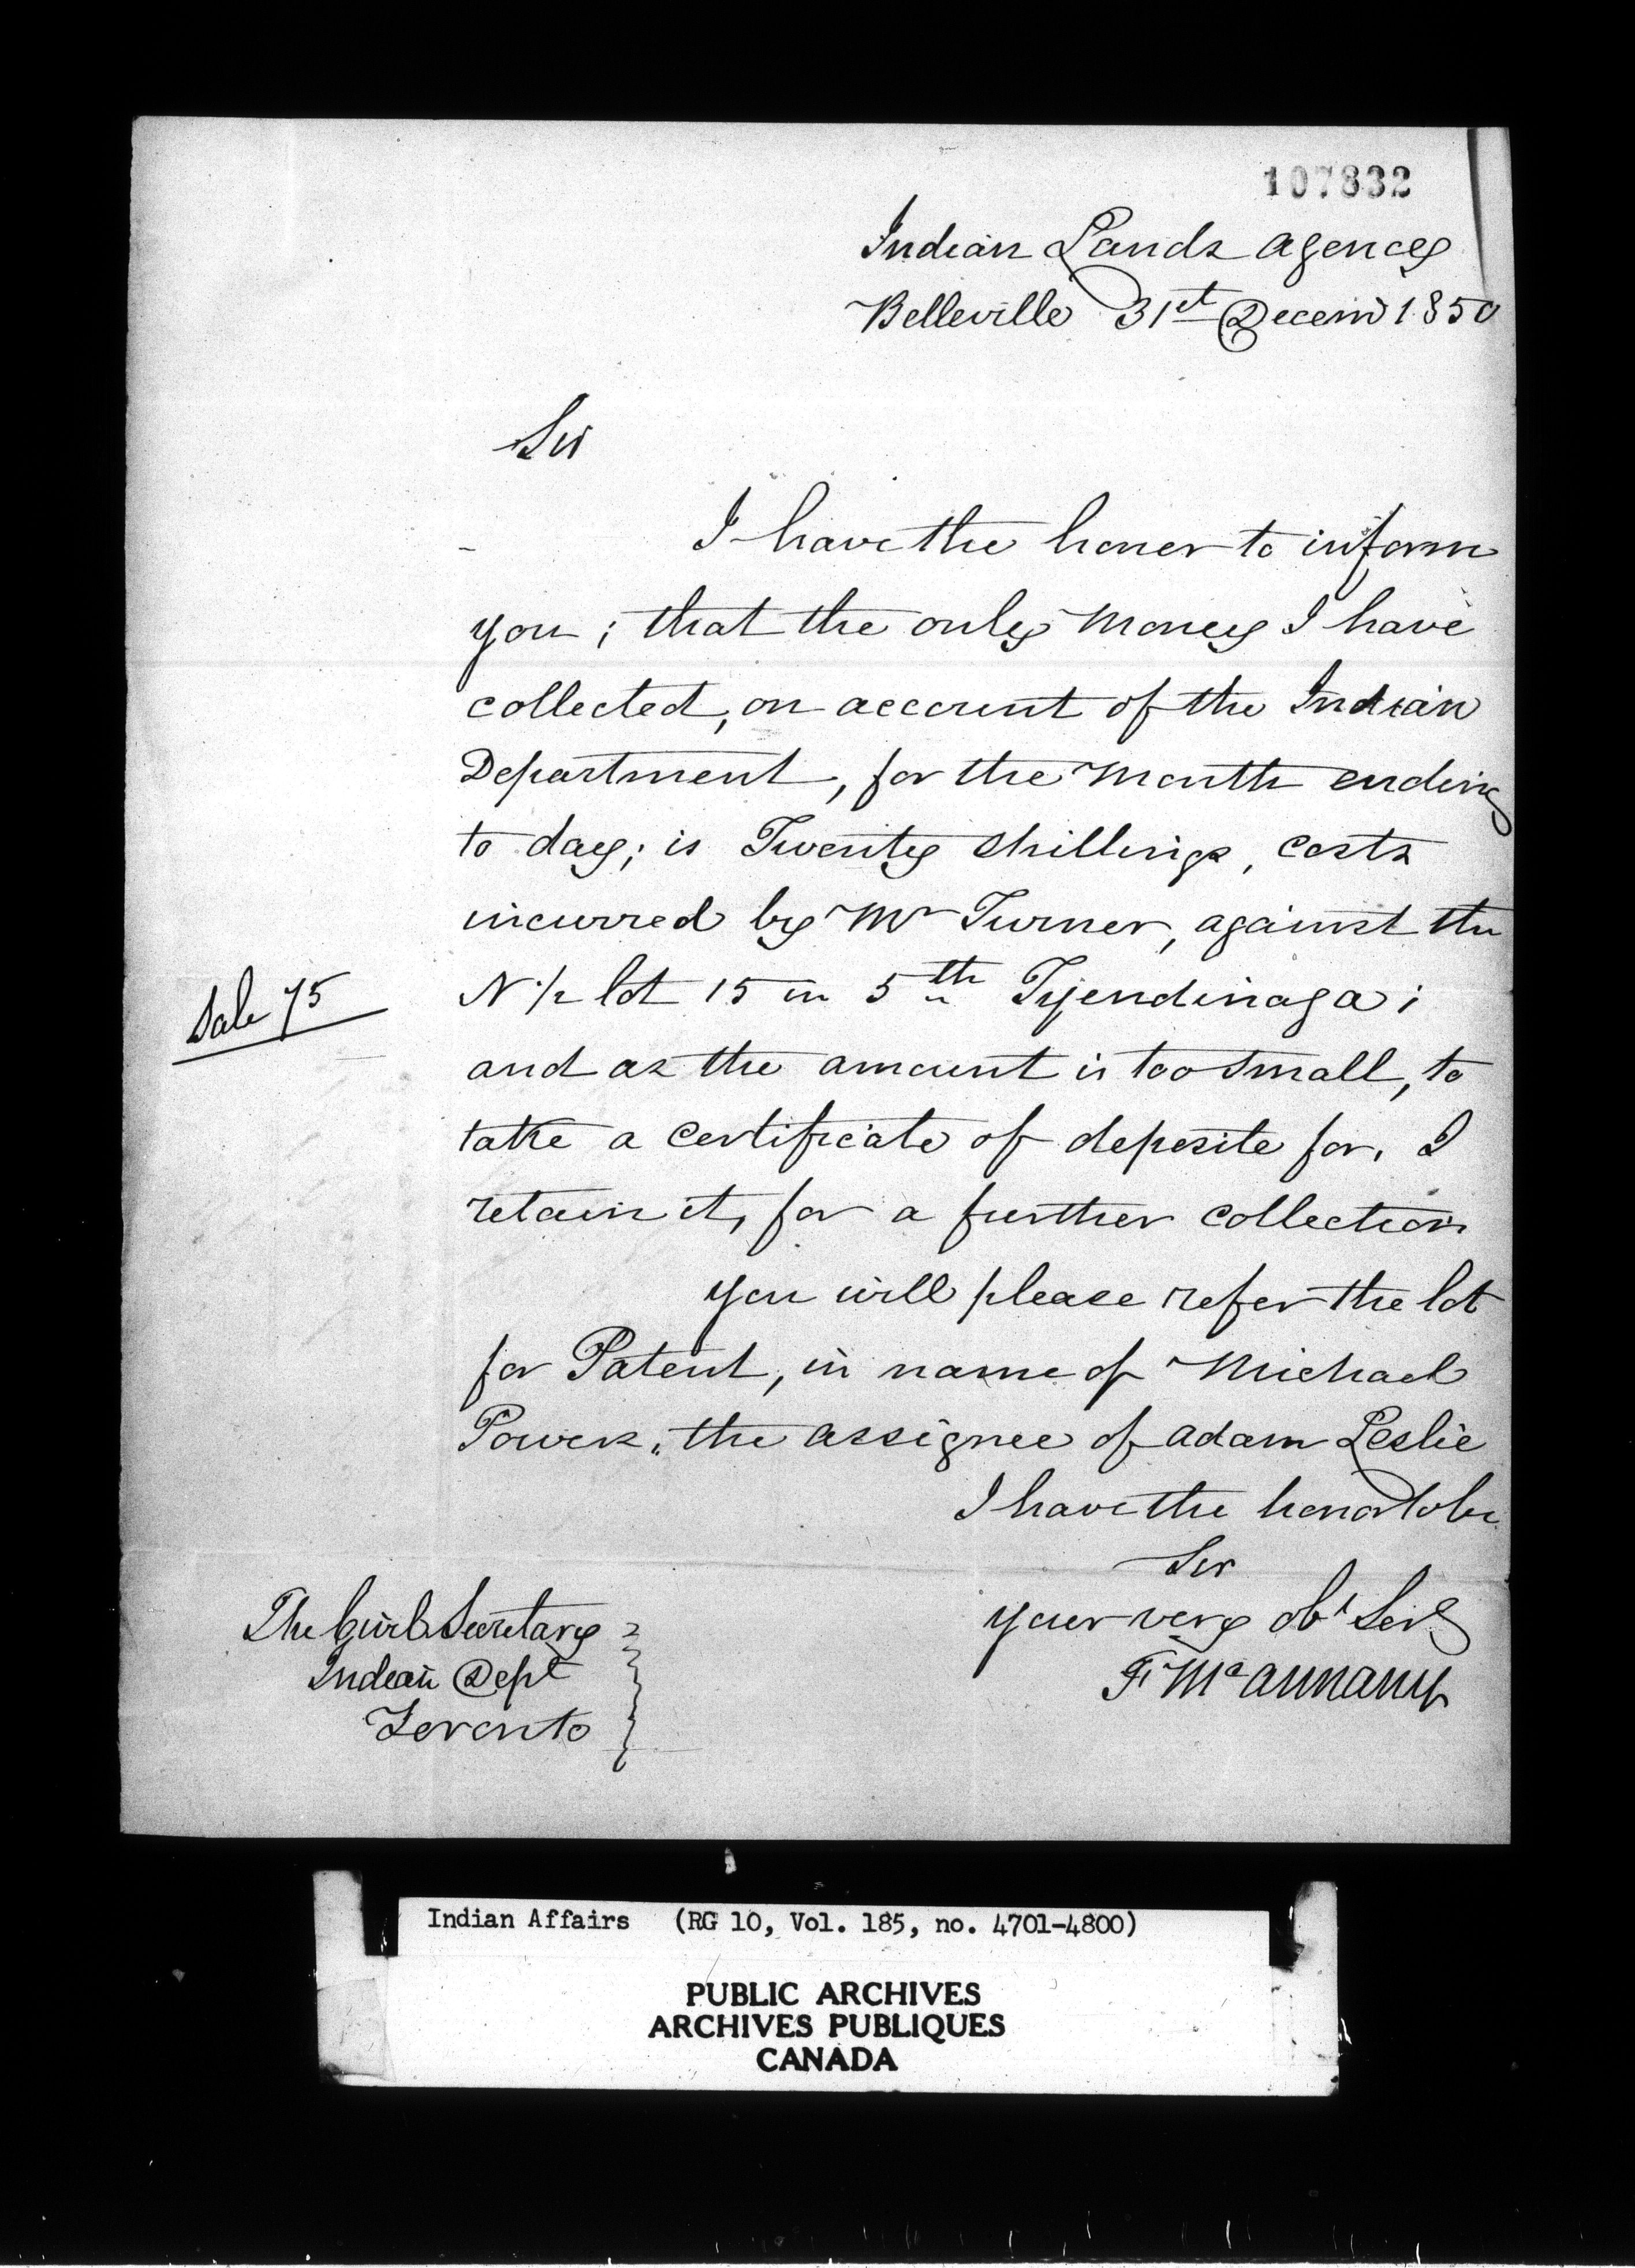 107832
Indian Lands Agency
Belleville 31st Decemr 1850
Sir
I have the honor to inform
you; that the only money I have
collected, on account of the Indian
Department, for the month ending
to day; is Twenty shillings, costs
incurred by Mr Turner, against the
N 1/2 lot 15 in 5th Tyendinaga;
Sale 75
and as the amount is too small, to
take a certificate of deposite for, I
retain it, for a further collection
you will please refer the lot
for Patent, in name of Michael
Power, the assignee of Adam Leslie
I have the honor to be
Sir
your very obt Servt
F McAnnany
The Civil Secretary
Indian Dept
Toronto
Indian Affairs (RG 10, Vol. 185, no. 4701-4800)
PUBLIC ARCHIVES
ARCHIVES PUBLIQUES
CANADA